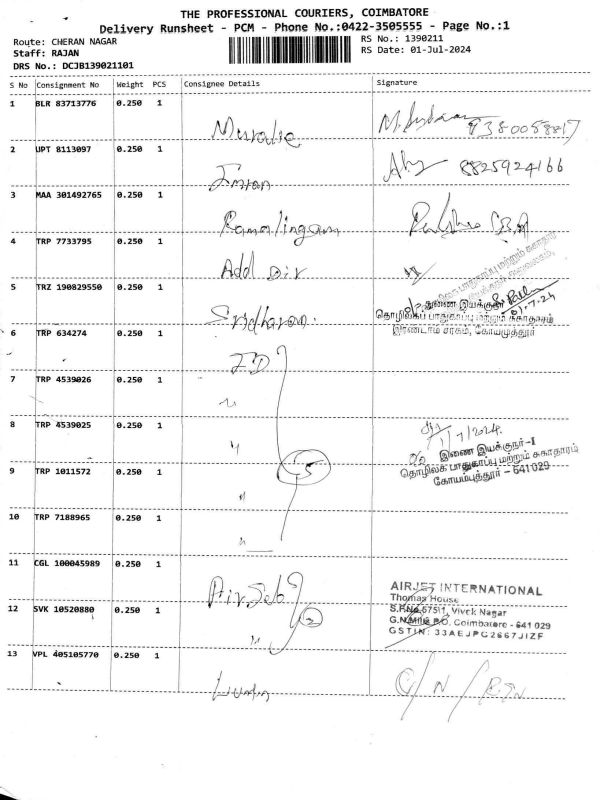 THE PROFESSIONAL COURIERS, COIMBATORE
Delivery Runsheet - PCM - Phone No.:0422-3505555 - Page No.:1
Route: CHERAN NAGAR
RS No.: 1390211
Staff: RAJAN
RS Date: 01-Jul-2024
DRS No.: DCJB139021101
S No Consignment No Weight PCS Consignee Details Signature
1 BLR 83713776 0.250 1
9380058817
2 UPT 8113097 0.250 1
Imran 8825924166
3 MAA 301492765 0.250 1
Ramalingam
4 TRP 7733795 0.250 1
Add Dir
5 TRZ 190829550 0.250 1
Sridharan.
துணை இயக்குநர்
01.7.24
தொழிலகப் பாதுகாப்பு மற்றும் சுகாதாரம்
இரண்டாம் சரகம், கோயமுத்தூர்
6 TRP 634274 0.250 1
JD
7 TRP 4539026 0.250 1
8 TRP 4539025 0.250 1
1/7/2024
இணை இயக்குநர்-I
தொழிலக பாதுகாப்பு மற்றும் சுகாதாரம்
கோயம்புத்தூர் - 641 029
9 TRP 1011572 0.250 1
5
10 TRP 7188965 0.250 1
11 CGL 100045989 0.250 1
AIRJET INTERNATIONAL
Thomas House
S.F.No 575/1, Vivek Nagar
G.N.Mills P.O, Coimbatore - 641 029
GSTIN: 33AEJPC2667J1ZF
12 SVK 10520880 0.250 1
2
13 VPL 405105770 0.250 1